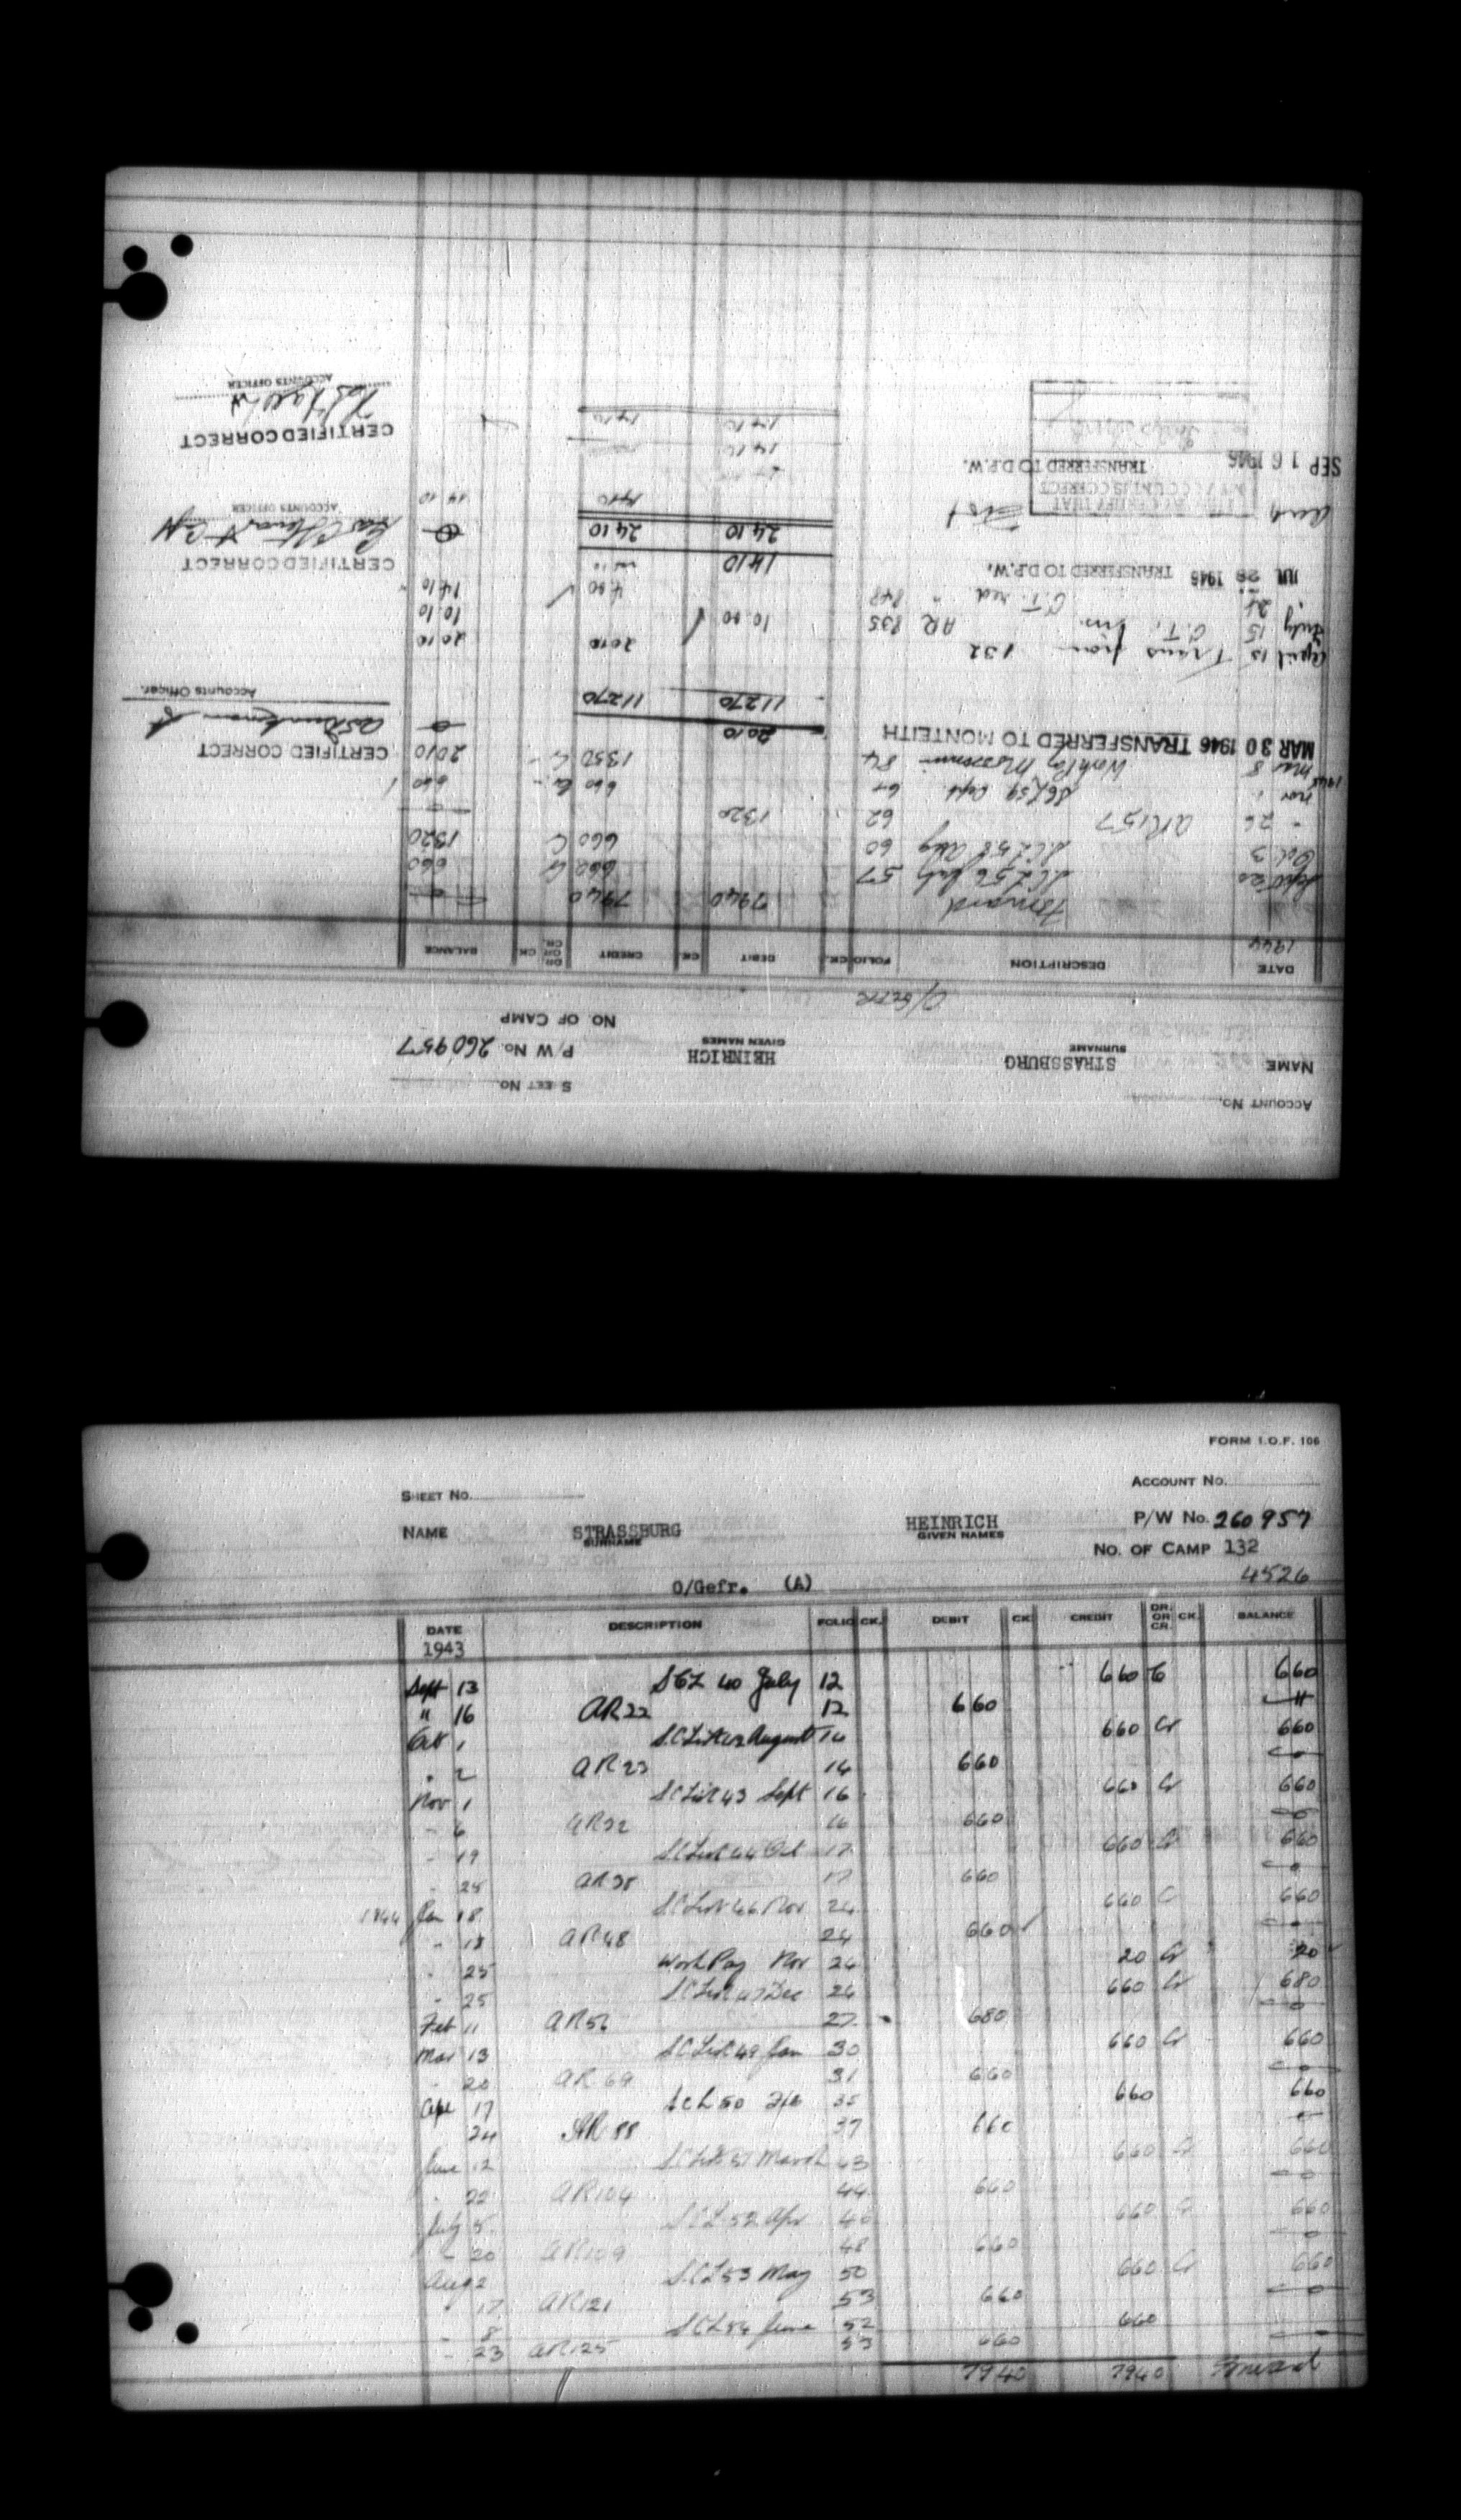 ACCOUNT No.
SHEET No.
NAME STRASSBURG HEINRICH P/W No. 260957
SURNAME GIVEN NAMES
NO. OF CAMP
O/GEFR
DATE DESCRIPTION FOLIO CK. DEBIT CK. CREDIT DR. OR CR. CK. BALANCE
1944
Forward 7940 7940
Sept 20 SCL 56 July 57 660 Cr 660
Oct 3 SCL 58 Aug 60 660 C 1320
" 26 AR157 62 1320
Nov 1 SCL 59 Sept 64 660 Cr 660
1945 Mar 8 Work Pay 84 1350 Cr 2010
MAR 30 1946 TRANSFERRED TO MONTEITH 2010
CERTIFIED CORRECT
11270 11270
Accounts Officer.
April 15 Trans from 132 2010 2010
July 15 C.T. AR 835 10.00 10.10
" 21 C.T. red " 848 4.00 14.10
JUL 26 1946 TRANSFERRED TO D.P.W. 1410
CERTIFIED CORRECT
2410 2410
ACCOUNTS OFFICER
1410 14 10
I CERTIFY THAT
MY ACCOUNT IS CORRECT
SEP 16 1946 TRANSFERRED TO D.P.W.
1410
CERTIFIED CORRECT
1410 1410
ACCOUNTS OFFICER
FORM I.O.F. 106
SHEET No. ACCOUNT No.
NAME STRASSBURG HEINRICH P/W No. 260957
SURNAME GIVEN NAMES
NO. OF CAMP 132
4526
O/Gefr. (A)
DATE DESCRIPTION FOLIO CK. DEBIT CK. CREDIT DR. OR CR. CK. BALANCE
1943
Sept 13 SCL 40 July 12 660 C 660
" 16 AR22 12 660
Oct 1 SCList 42 August 14 660 Cr 660
" 2 AR23 14 660
Nov 1 SCList 43 Sept 16 660 Cr 660
" 6 AR32 16 660
" 19 SCList 44 Oct 17 660 Cr 660
" 25 AR38 17 660
1944 Jan 18 SCList 46 Nov 24 660 C 660
" 18 AR48 24 660
" 25 Work Pay Nov 26 20 Cr 20
" 25 SCList 47 Dec 26 660 Cr 680
Feb 11 AR56 27 680
Mar 13 SCList 49 Jan 30 660 Cr 660
" 20 AR 69 31 660
Apr 17 SCL 50 Feb 35 660 660
24 AR 88 37 660
June 12 SCList 51 March 43 660 Cr 660
" 22 AR104 44 660
July 5 SCL 52 Apr 46 660 Cr 660
" 20 AR109 48 660
Aug 2 SCL 53 May 50 660 Cr 660
" 17 AR121 53 660
" 8 SCL 54 June 52 660
" 23 AR125 53 660
7940 7940 Forward